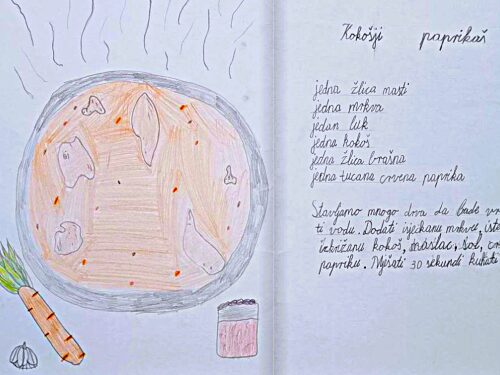 Kokošji paprikaš
jedna žlica masti
jedna mrkva
jedan luk
jedna kokoš
jedna žlica brašna
jedna tucana crvena paprika
Stavljamo mnogo drva da bude
vodu. Dodati isjeckanu mrkvu,
kokoš, maslac, sol,
papriku. Miješati 30 sekundi kuhati